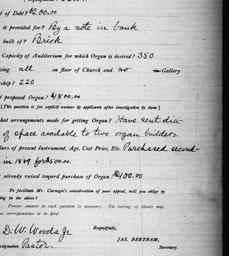 t of Debt? $200.00
is provided for? By a note in bank
built of? Brick
Capacity of Auditorium for which Organ is desired? 350
ting all on floor of Church and no in Gallery
ship? 220
of proposed Organ? $1800.00
[This question is for explicit answer by applicants after investigation by them]
hat arrangements made for getting Organ? Have sent dia-
of space available to two organ builders.
lars of present Instrument, Age, Cost Price, Etc. Purchased second-
in 1889 for $500.00.
already raised toward purchase of Organ $400.00
To facilitate Mr. Carnegie's consideration of your appeal, will you oblige by
ing in the above?
Precise answer to each question is necessary. The leaving of blanks may
no correspondence to be filed
Respectfully,
D. W. Woods Jr
JAS. BERTRAM,
esignation Pastor.
Secretary.